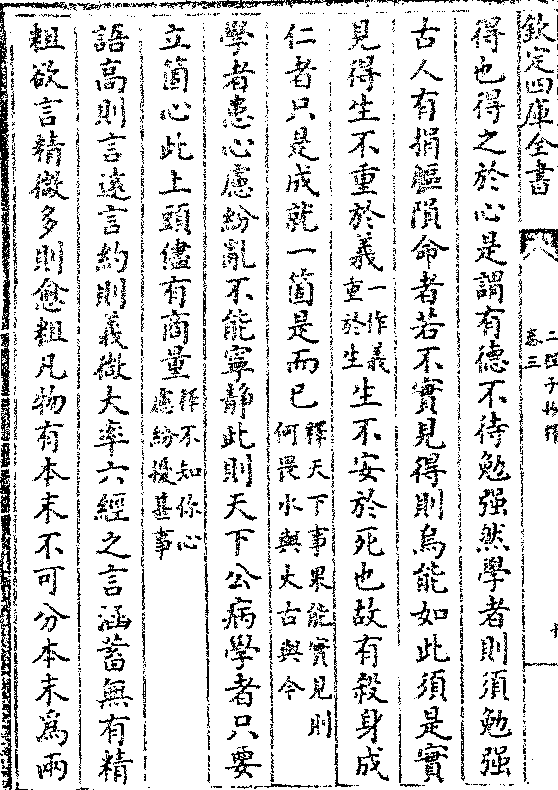 欽定四庫全書
卷三
得也得之於心是謂有德不待勉强然學者則須勉强
古人有捐軀隕命者若不實見得則烏能如此須是實
見得生不重於義一作義重於生生不安於死也故有殺身成
仁者只是成就一箇是而已釋天下事果能實見則何畏水與火古與今
學者患心慮紛亂不能寧静此則天下公病學者只要
立箇心此上頭儘有商量釋不知你心慮紛擾甚事
語高則言遠言約則義微大率六經之言涵蓄無有精
粗欲言精微多則愈粗凡物有本末不可分本末為兩